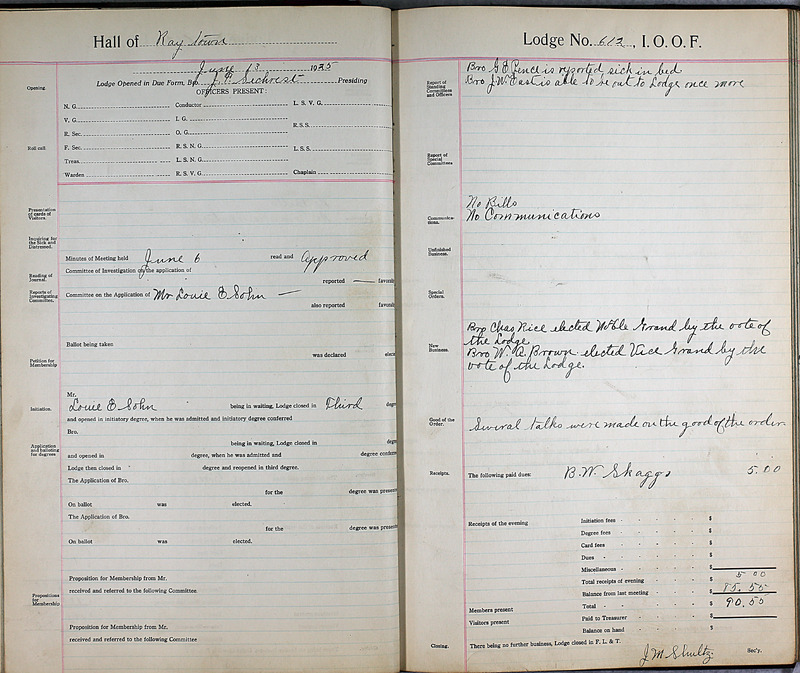 Hall of Raytown
June 13 1925
Lodge Opened in Due Form, Bro. J. P. Sechrest Presiding
Opening.
OFFICERS PRESENT:
N. G. Conductor L. S. V. G.
V. G. I. G. R.S.S.
R. Sec. O. G.
Roll call.
F. Sec. R. S. N. G. L.S.S.
Treas. L. S. N. G.
Warden R. S. V. G. Chaplain
Presentation of cards of Visitors.
Inquiring for the Sick and Distressed.
Minutes of Meeting held June 6 read and approved
Reading of Journal.
Committee of Investigation on the application of
reported — favorab
Reports of Investigating Committee.
Committee on the Application of Mr Louie E Sohn —
also reported favorab
Ballot being taken
was declared elect
Petition for Membership
Mr.
Initiation.
Louie E Sohn being in waiting, Lodge closed in Third degr
and opened in initiatory degree, when he was admitted and initiatory degree conferred
Bro.
being in waiting, Lodge closed in degr
Application and balloting for degrees
and opened in degree, when he was admitted and degree conferre
Lodge then closed in degree and reopened in third degree.
The Application of Bro.
for the degree was present
On ballot was elected.
The Application of Bro.
for the degree was present
On ballot was elected.
Proposition for Membership from Mr.
received and referred to the following Committee
Propositions for Membership
Proposition for Membership from Mr.
received and referred to the following Committee
Lodge No. 612, I. O. O. F.
Bro G E Pence is reported sick in bed
Report of Standing Committees and Officers
Bro J. W. East is able to be out to Lodge once more
Report of Special Committees
No Bills
Communications.
No Communications
Unfinished Business.
Special Orders.
Bro Chas Rice elected Noble Grand by the vote of
the Lodge
New Business.
Bro W. A. Brown elected Vice Grand by the
vote of the Lodge.
Good of the Order.
Several talks were made on the good of the order.
Receipts.
The following paid dues: B. W. Skaggs 5.00
Receipts of the evening Initiation fees $
Degree fees $
Card fees $
Dues $
Miscellaneous $
Total receipts of evening $ 5 00
Balance from last meeting $ 85.55
Members present Total $ 90.55
Visitors present Paid to Treasurer $
Balance on hand $
Closing.
There being no further business, Lodge closed in F. L. & T.
J M Shultz. Sec'y.